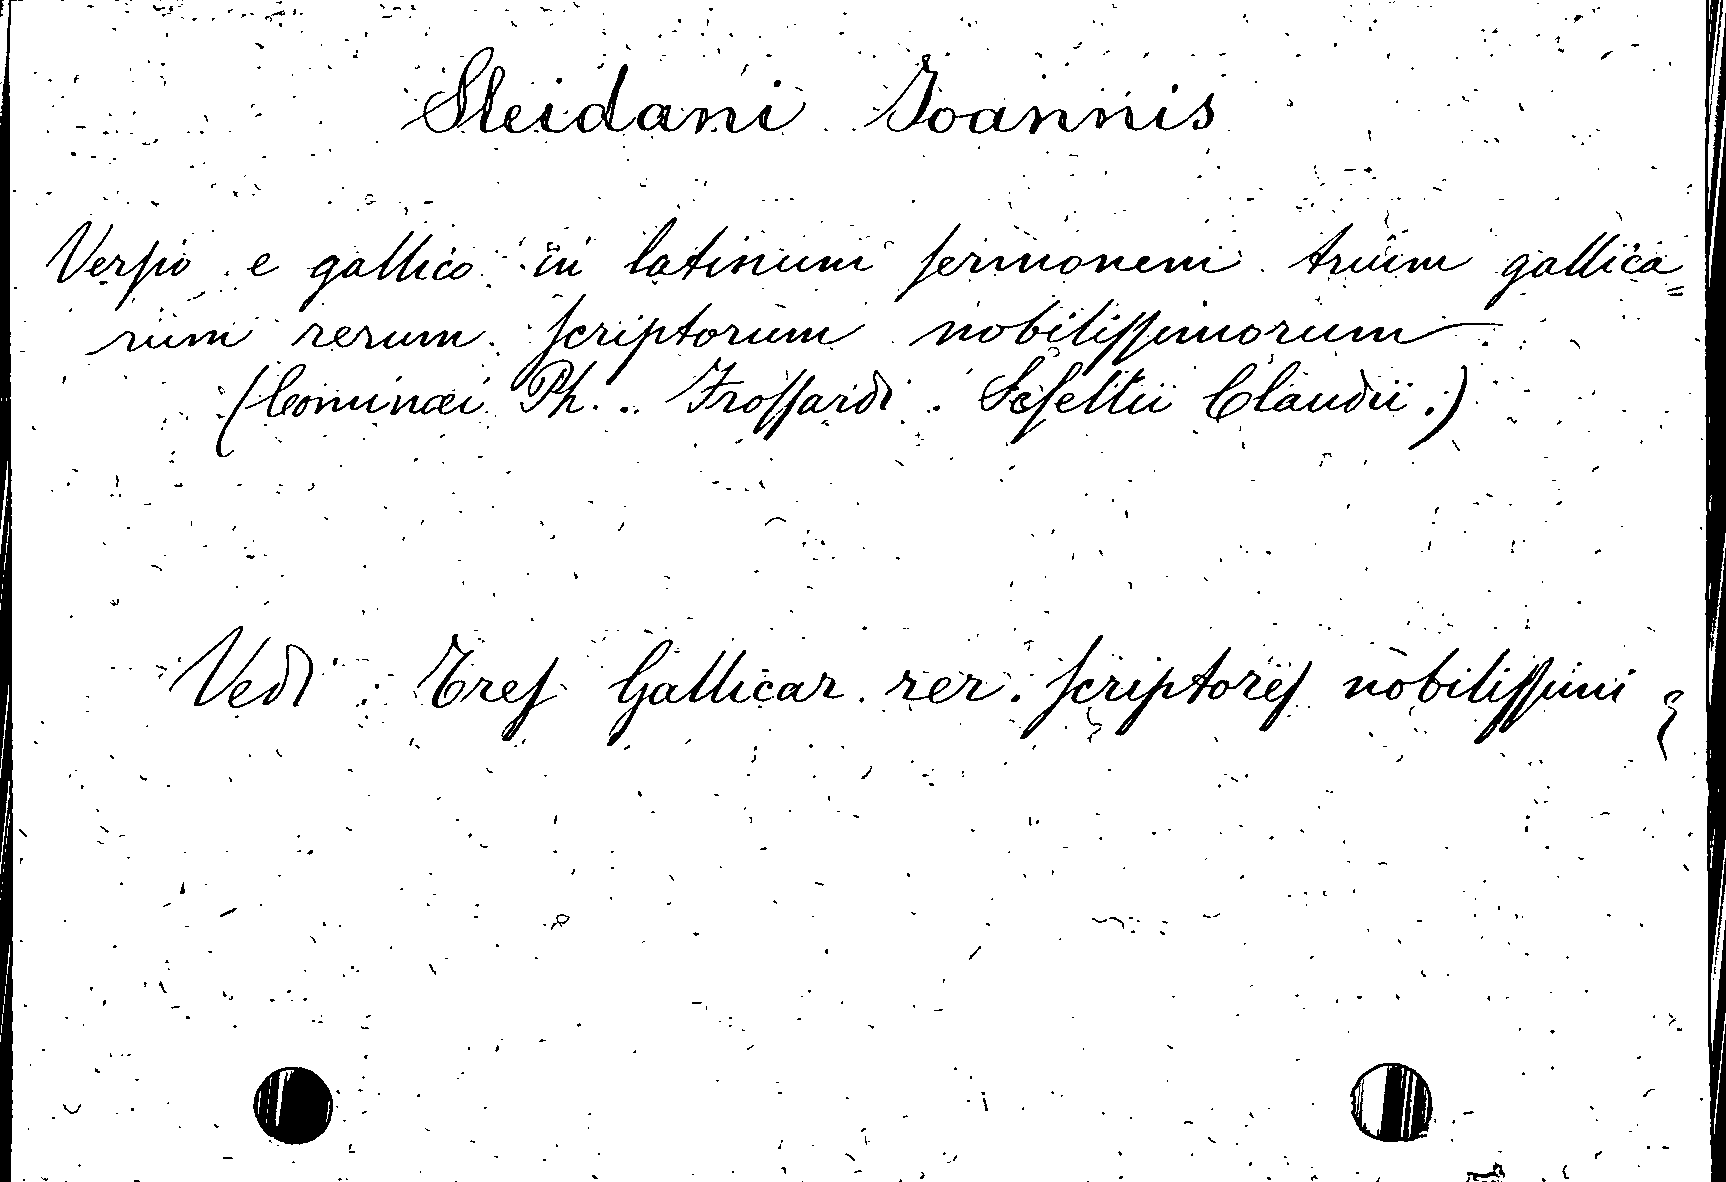 Sleidani Joannis
Verſio e gallico in latinum ſermonem trium gallica=
rum rerum ſcriptorum nobiliſſimorum
(Cominæi Ph. . Froſſardi . Seſeltii Claudii.)
Vedi : Treſ Gallicar. rer. ſcriptoreſ nobiliſſimi